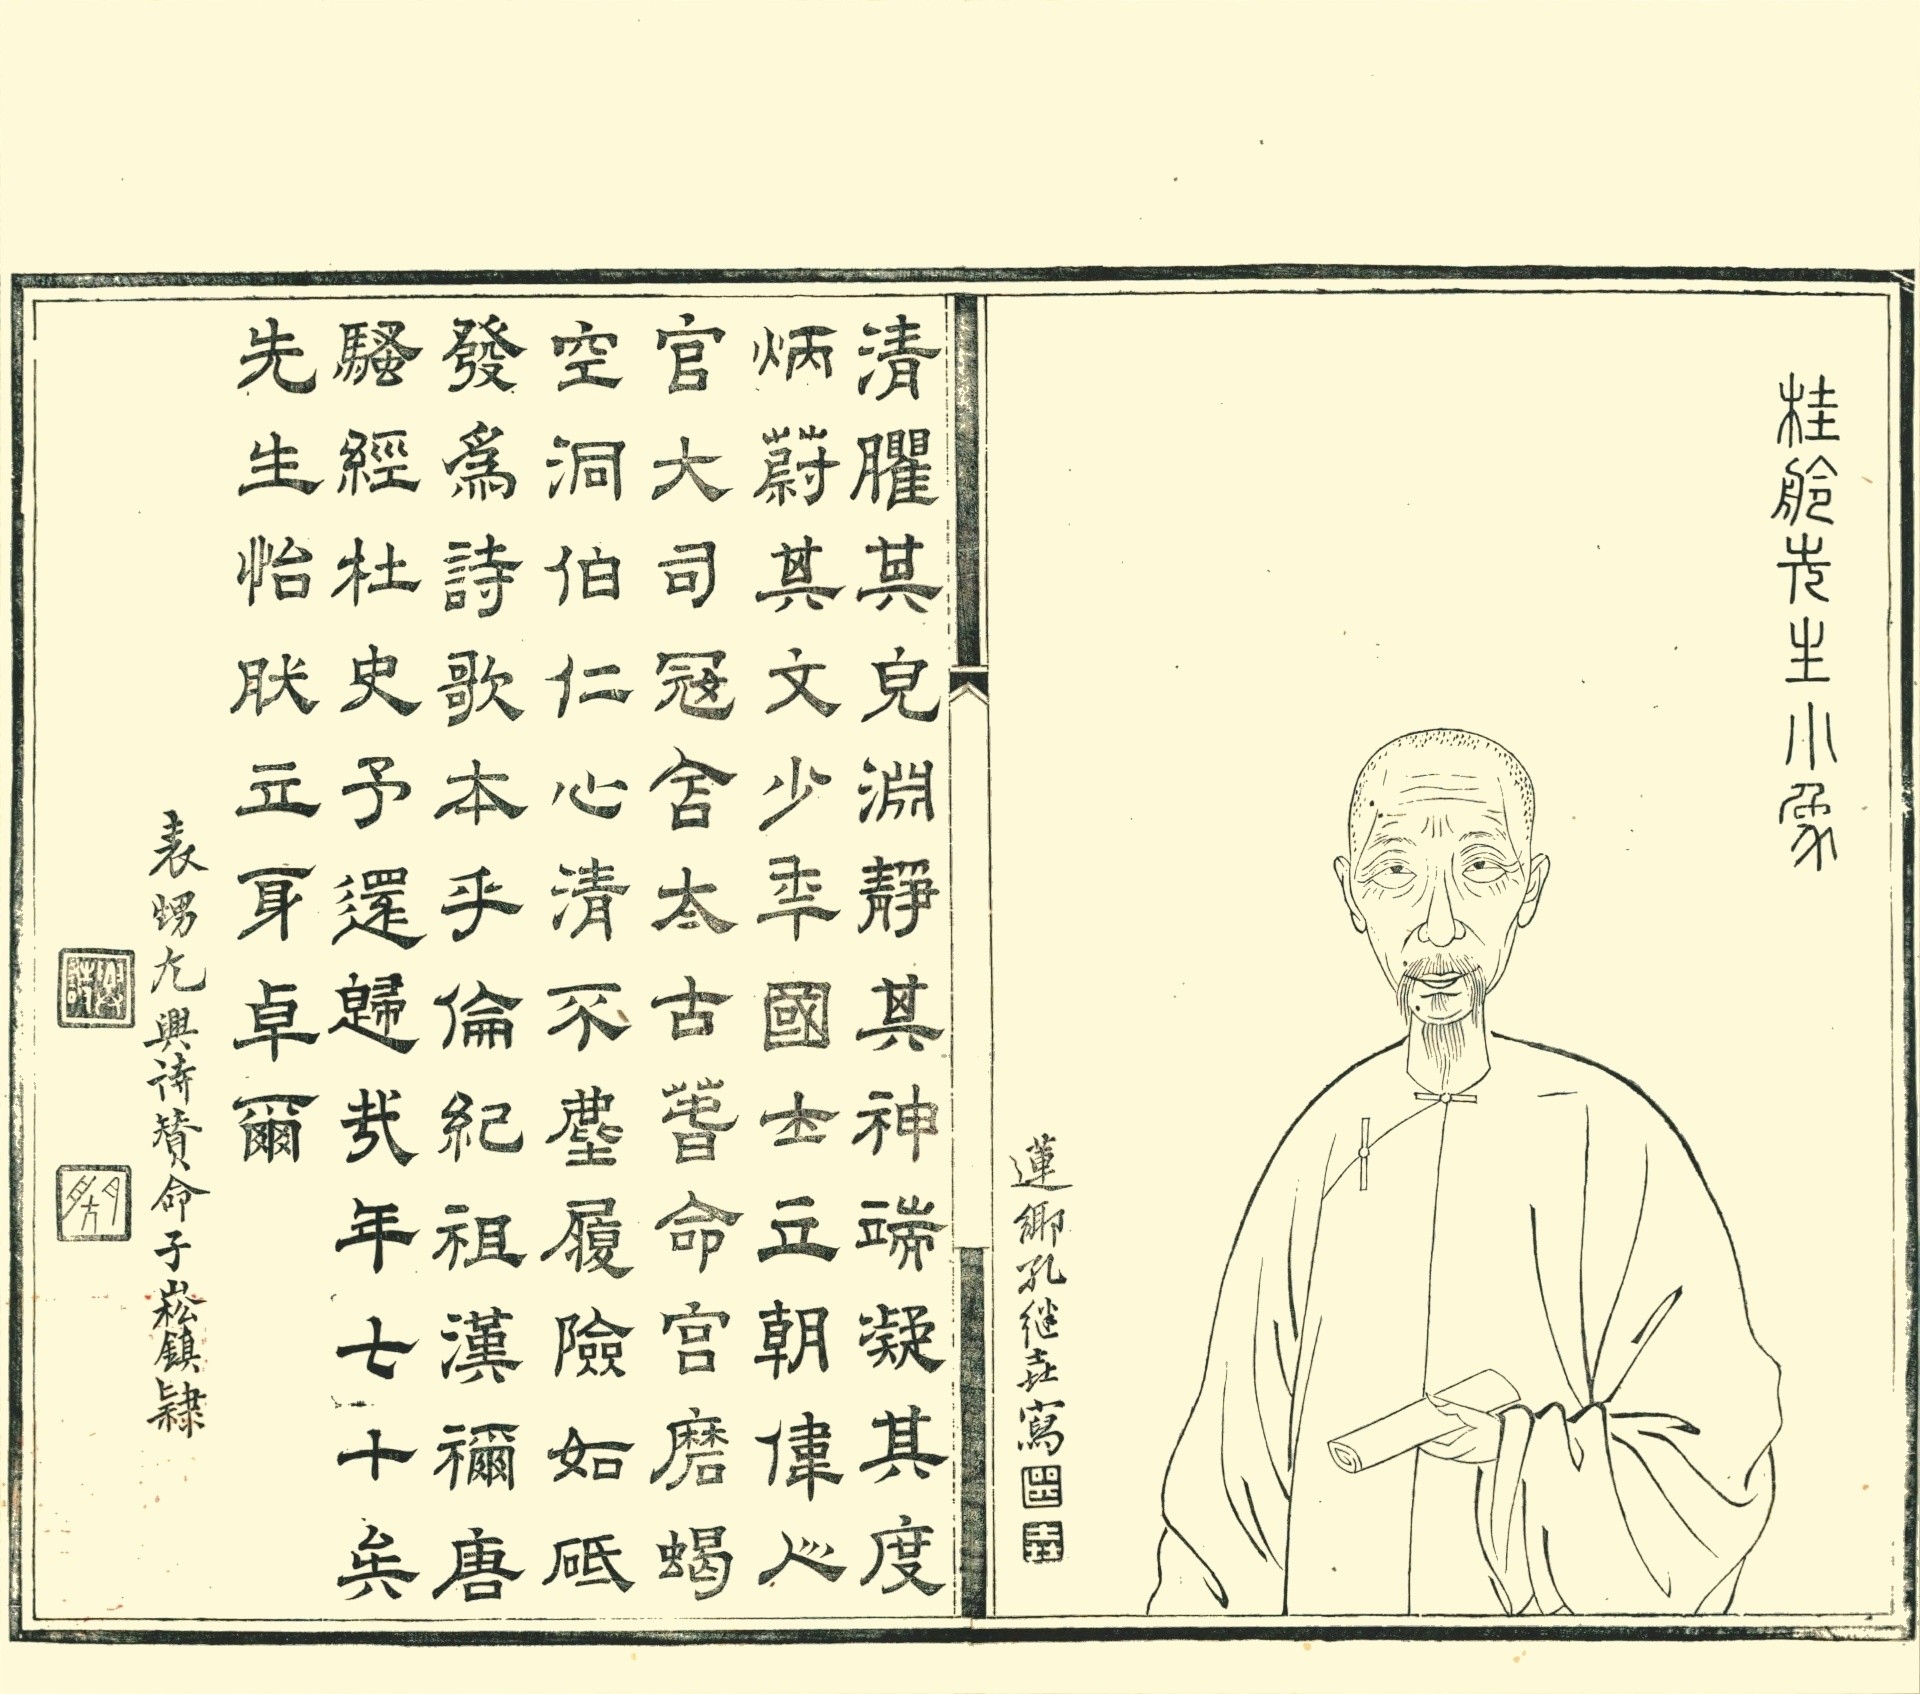 桂舲先生小象
蓮鄉孔継垚寫
清臞其皃淵靜其神端凝其度
炳蔚其文少秊國士立朝偉人
官大司冦舍太古萅命宫磨蝎
空洞伯仁心清不塵履險如砥
發爲詩歌本乎倫紀祖漢禰唐
騷經杜史予還歸哉年七十矣
先生怡肰立身卓爾
表甥尤興詩贊命子崧鎮隸